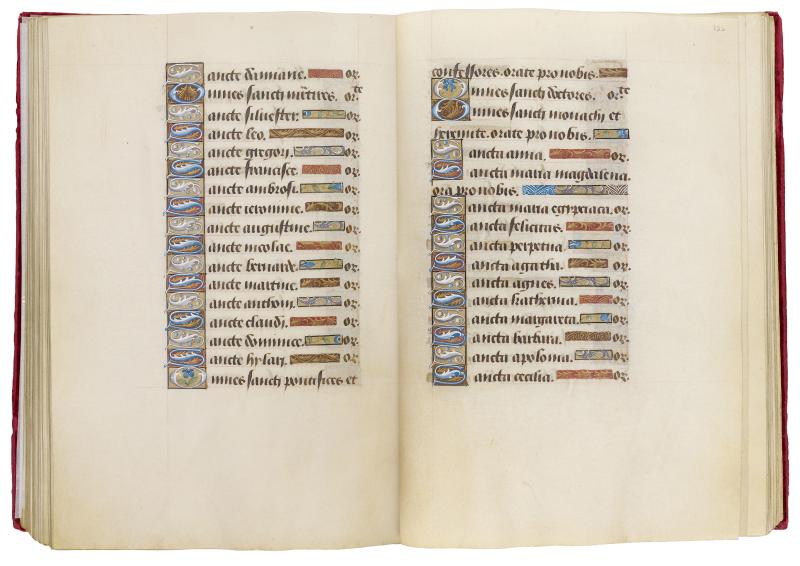 Sancte damiane. or.
Omnes sancti mr̃tires. or.te
Sancte siluester. or.
Sancte leo. or.
Sancte gregori. or.
Sancte francisce. or.
Sancte ambrosi. or.
Sancte ieronime. or.
Sancte augustine. or.
Sancte nicolae. or.
Sancte bernarde. or.
Sancte martine. or.
Sancte anthoni. or.
Sancte claudi. or.
Sancte dominice. or.
Sancte hylari. or.
Omnes sancti pontifices et
confessores. orate pro nobis.
Omnes sancti doctores. or.te
Omnes sancti monachi et
heremite. orate pro nobis.
Sancta anna. or.
Sancta maria magdalena.
ora pro nobis.
Sancta maria egyptiaca. or.
Sancta felicitas. or.
Sancta perpetua. or.
Sancta agatha. or.
Sancta agnes. or.
Sancta katherina. or.
Sancta margareta. or.
Sancta barbara. or.
Sancta apolonia. or.
Sancta cecilia. or.